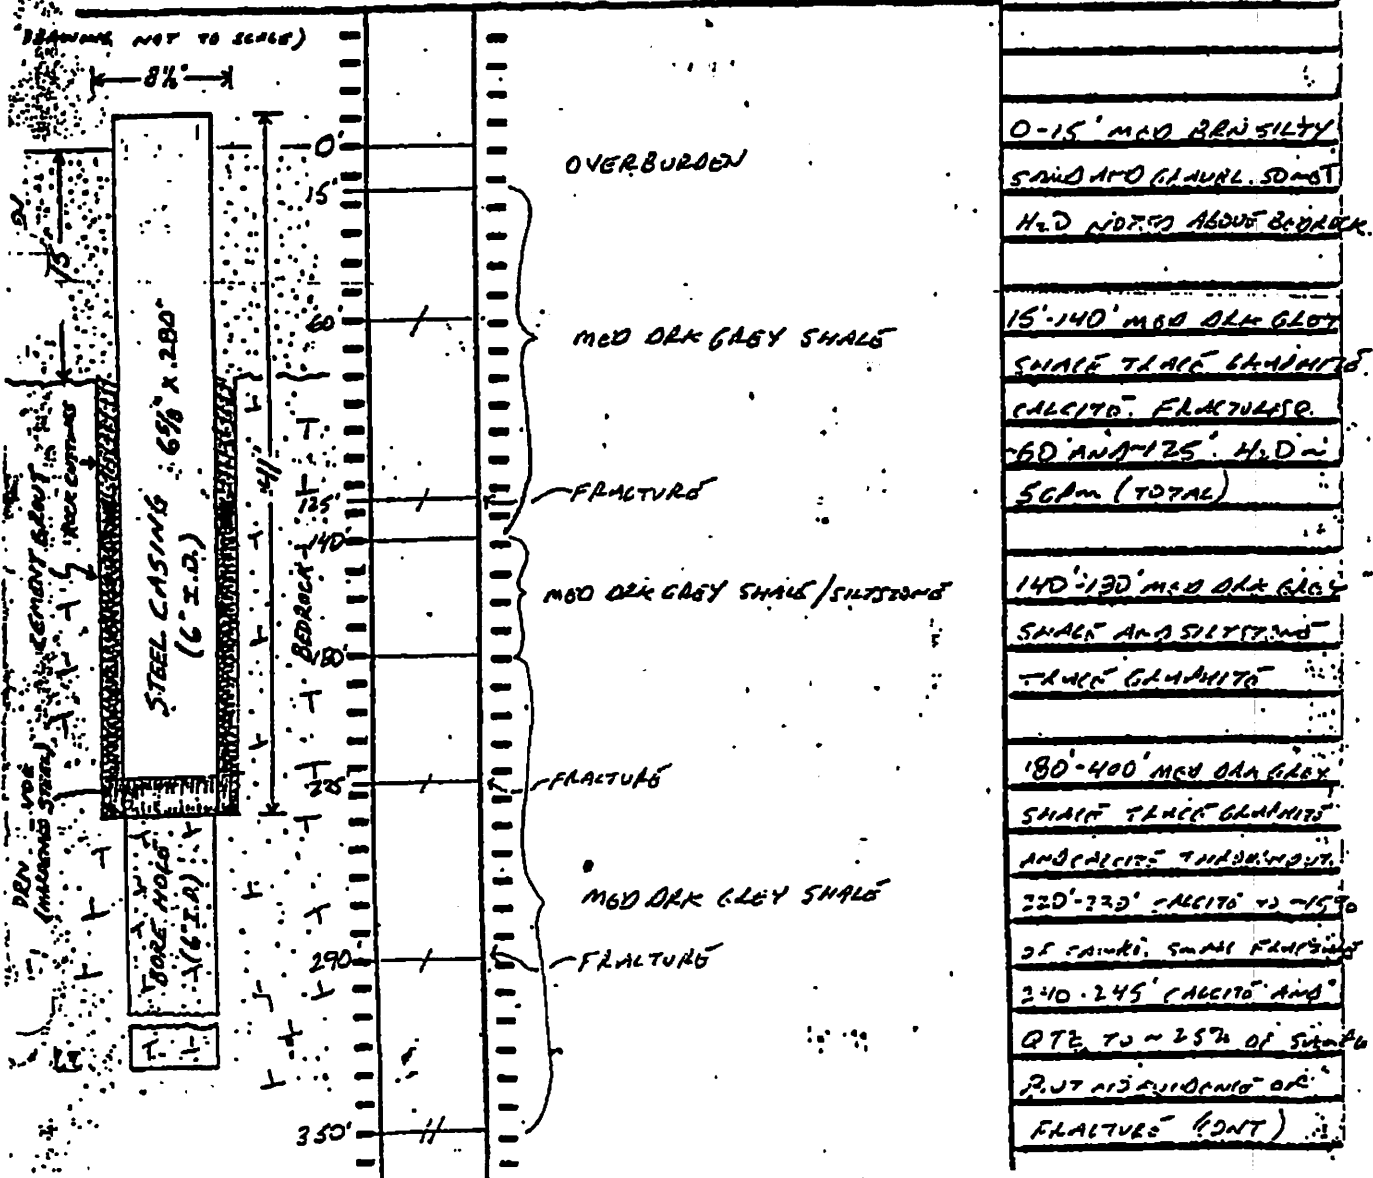 DRAWING NOT TO SCALE)
8½"
0'
15'
60'
125'
140'
180'
225'
290
350'
15'
41'
STEEL CASING 6⅝" x .280"
(6" I.D.)
CEMENT GROUT
ROCK CUTTINGS
BEDROCK
(HARDENED STEEL)
BORE HOLE
(6" I.D.)
OVERBURDEN
MED DRK GREY SHALE
FRACTURE
MED DRK GREY SHALE/SILTSTONE
FRACTURE
MED DRK GREY SHALE
FRACTURE
0-15' MED BRN SILTY
SAND AND GRAVEL.
H2O NOTED ABOVE BEDROCK.
15'-140' MED DRK GREY
SHALE TRACE GRAPHITE
CALCITE. FRACTURES@
~60' AND ~125'. H2O ~
5GPM (TOTAL)
140'-180' MED DRK GREY
SHALE AND SILTSTONE
TRACE GRAPHITE
180'-400' MED DRK GREY
SHALE TRACE GRAPHITE
AND CALCITE THROUGHOUT.
CALCITE TO ~15%
SMALL
240-245' CALCITE AND
QTZ TO ~25% OF SAMPLE
BUT NO EVIDENCE OF
FRACTURE (CONT)